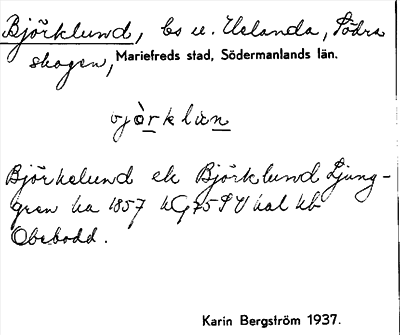 Björklund, bs u. Uslanda, Södra
skogen, Mariefreds stad, Södermanlands län.
Björkelund ek Björklund Ljung-
gren ha 1857
Obebodd.
Karin Bergström 1937.